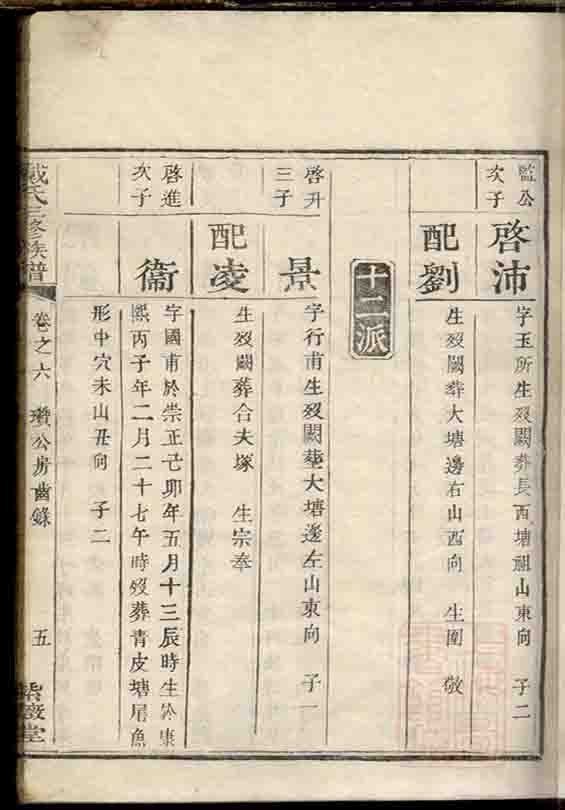 監公
次子
啓沛
字玉所生歿闕葬長西塘祖山東向 子二
配劉
生歿闕葬大塘邊右山西向 生圍 敬
十二派
啓升
三子
景
字行甫生歿闕葬大塘邊左山東向 子一
配凌
生歿闕葬合夫塚 生宗奉
啓進
次子
衞
字國甫於崇正己卯年五月十三辰時生於康
熙丙子年二月二十七午時歿葬青皮塘尾魚
形中穴未山丑向 子二
戴氏三修族譜
卷之六 瓚公房齒錄
五
紫薇堂